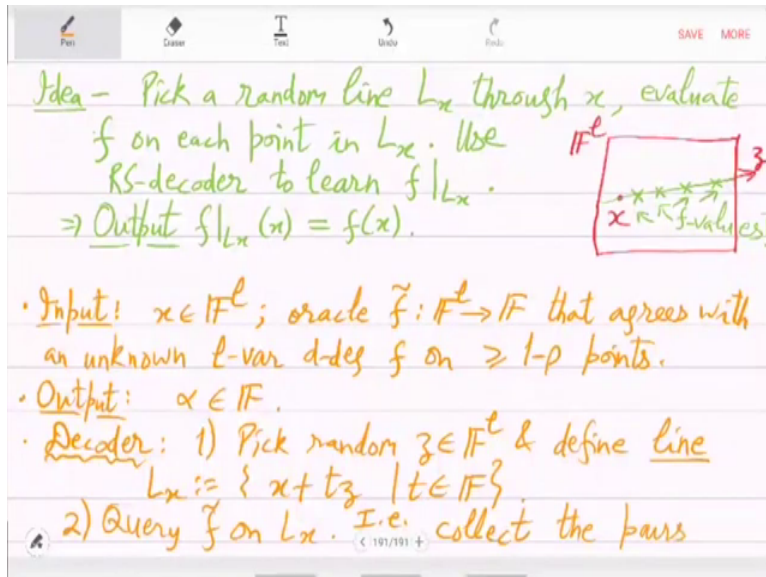 Pen Eraser Text Undo Redo SAVE MORE
Idea - Pick a random line Lₓ through x, evaluate
f on each point in Lₓ. Use
RS-decoder to learn f|Lₓ.
⇒ Output f|Lₓ(x) = f(x).
𝔽ˡ
z
x
f-values
· Input: x ∈ 𝔽ˡ; oracle f̃: 𝔽ˡ → 𝔽 that agrees with
an unknown l-var d-deg f on ≥ 1-ρ points.
· Output: α ∈ 𝔽.
· Decoder: 1) Pick random z ∈ 𝔽ˡ & define line
Lₓ := { x + tz | t ∈ 𝔽 }.
2) Query f̃ on Lₓ. I.e. collect the pairs
< 191/191 +